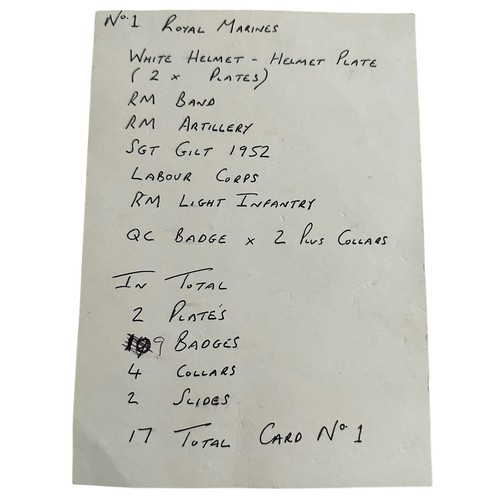 No. 1 Royal Marines
White Helmet - Helmet Plate
(2 x Plates)
RM Band
RM Artillery
Sgt Gilt 1952
Labour Corps
RM Light Infantry
QC Badge x 2 Plus Collars
In Total
2 Plate's
9 Badges
4 Collars
2 Slides
17 Total Card No. 1